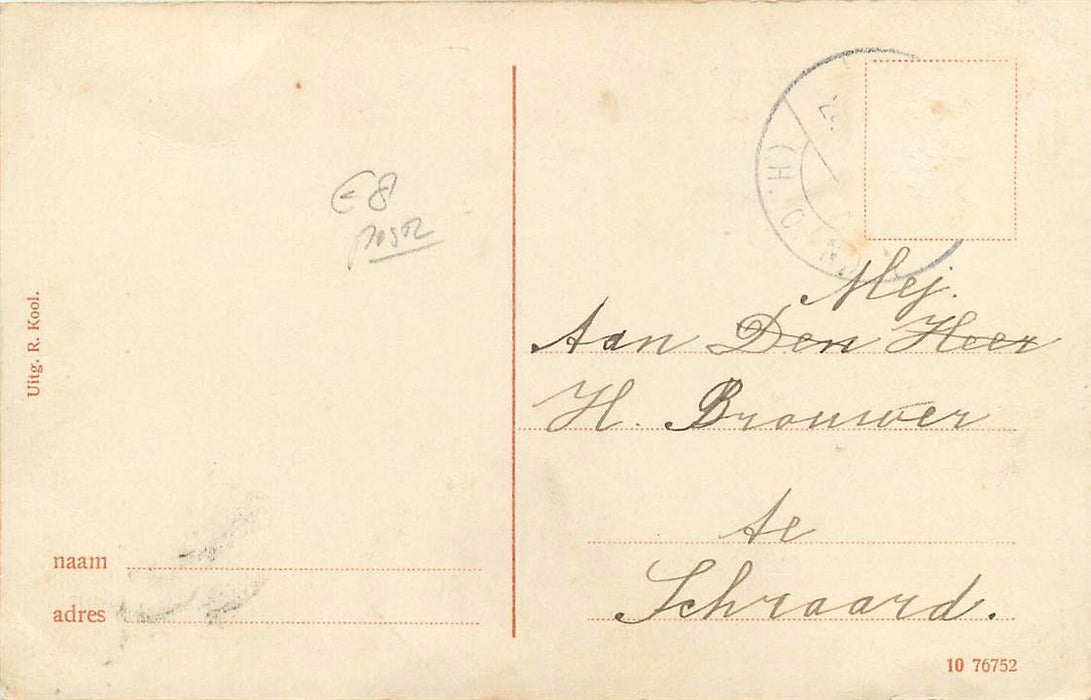 Uitg. R. Kool.
Mej.
Aan Den Heer
H. Brouwer
te
Schraard.
naam
adres
10 76752